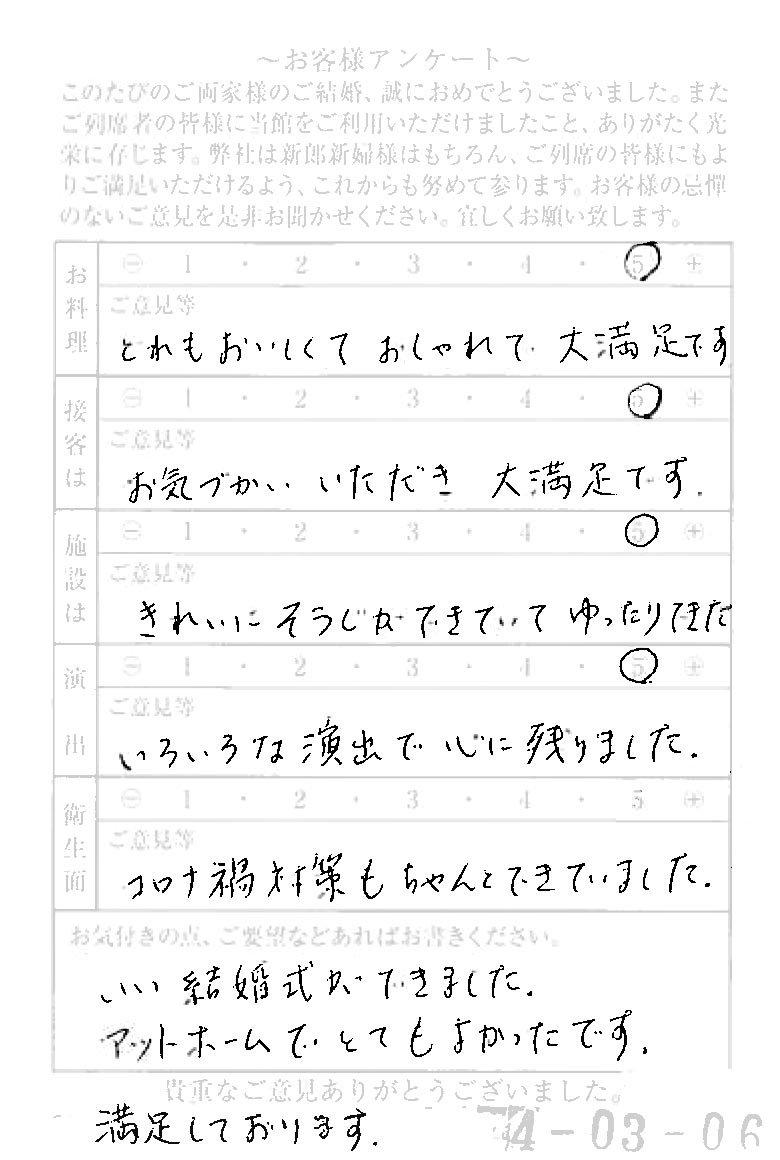 ～お客様アンケート～
このたびのご両家様のご結婚、誠におめでとうございました。また
ご列席者の皆様に当館をご利用いただけましたこと、ありがたく光
栄に存じます。弊社は新郎新婦様はもちろん、ご列席の皆様にもよ
りご満足いただけるよう、これからも努めて参ります。お客様の忌憚
のないご意見を是非お聞かせください。宜しくお願い致します。
お料理
⊖ 1 ・ 2 ・ 3 ・ 4 ・ 5 ⊕
ご意見等
どれもおいしくて おしゃれで 大満足です
接客は
⊖ 1 ・ 2 ・ 3 ・ 4 ・ 5 ⊕
ご意見等
お気づかい いただき 大満足です.
施設は
⊖ 1 ・ 2 ・ 3 ・ 4 ・ 5 ⊕
ご意見等
きれいに そうじができていて ゆったりできた
演出
⊖ 1 ・ 2 ・ 3 ・ 4 ・ 5 ⊕
ご意見等
いろいろな演出で心に残りました.
衛生面
⊖ 1 ・ 2 ・ 3 ・ 4 ・ 5 ⊕
ご意見等
コロナ禍対策もちゃんとできていました.
お気付きの点、ご要望などあればお書きください。
いい結婚式ができました.
アットホームでとてもよかったです.
貴重なご意見ありがとうございました。
満足しております.
4-03-06